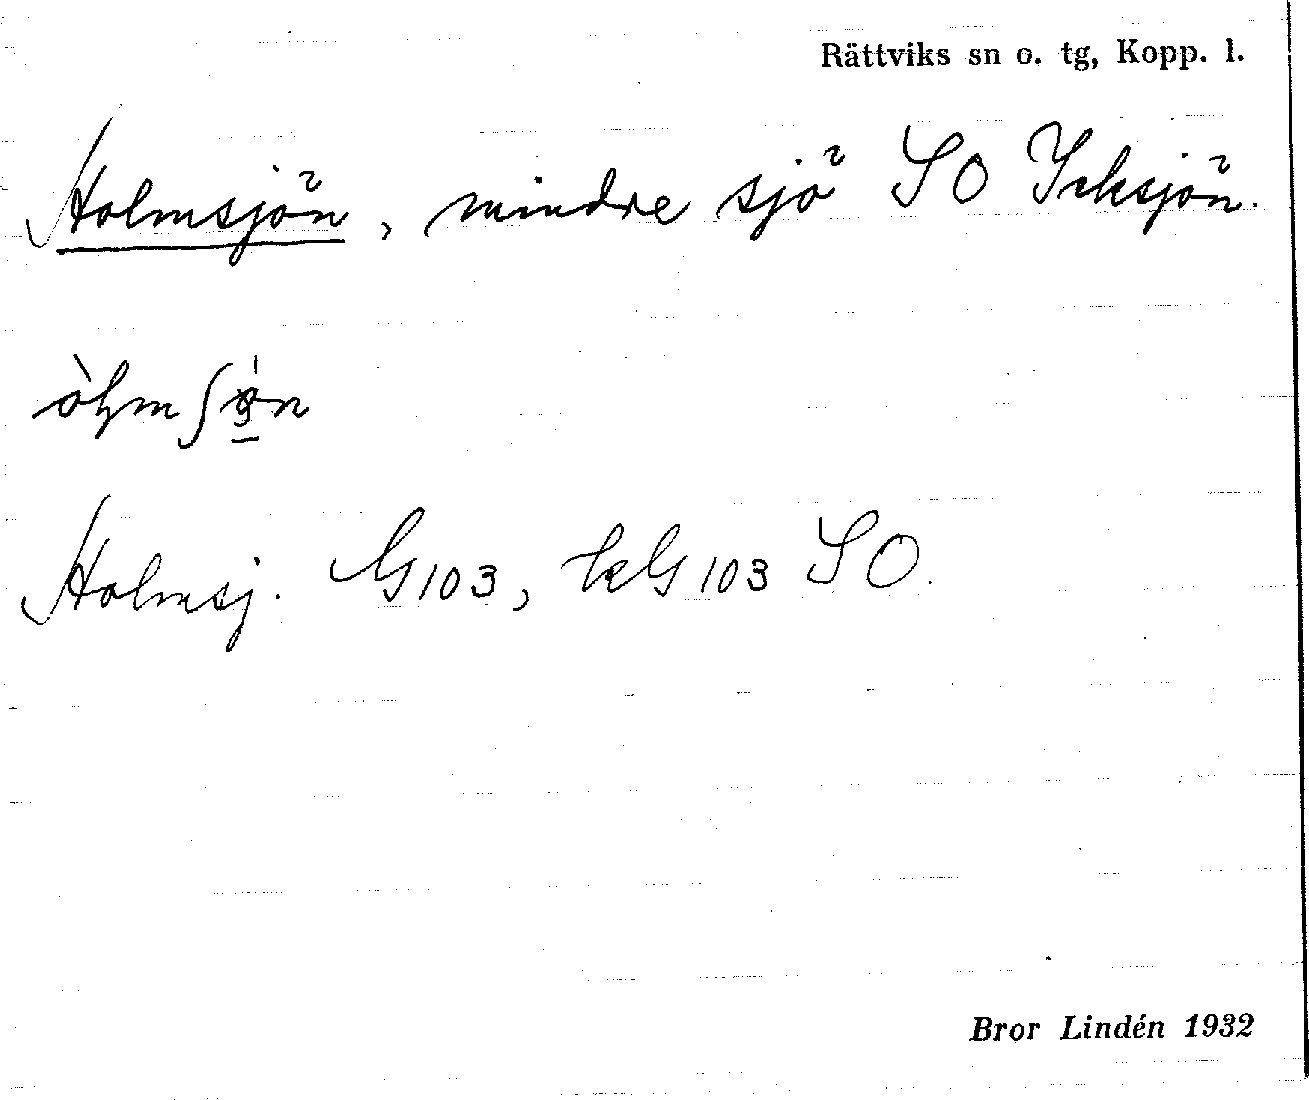 Rättviks sn o. tg, Kopp. l.
Holmsjön, mindre sjö SO Icksjön.
Holmsj. G103, kG103 SO.
Bror Lindén 1932